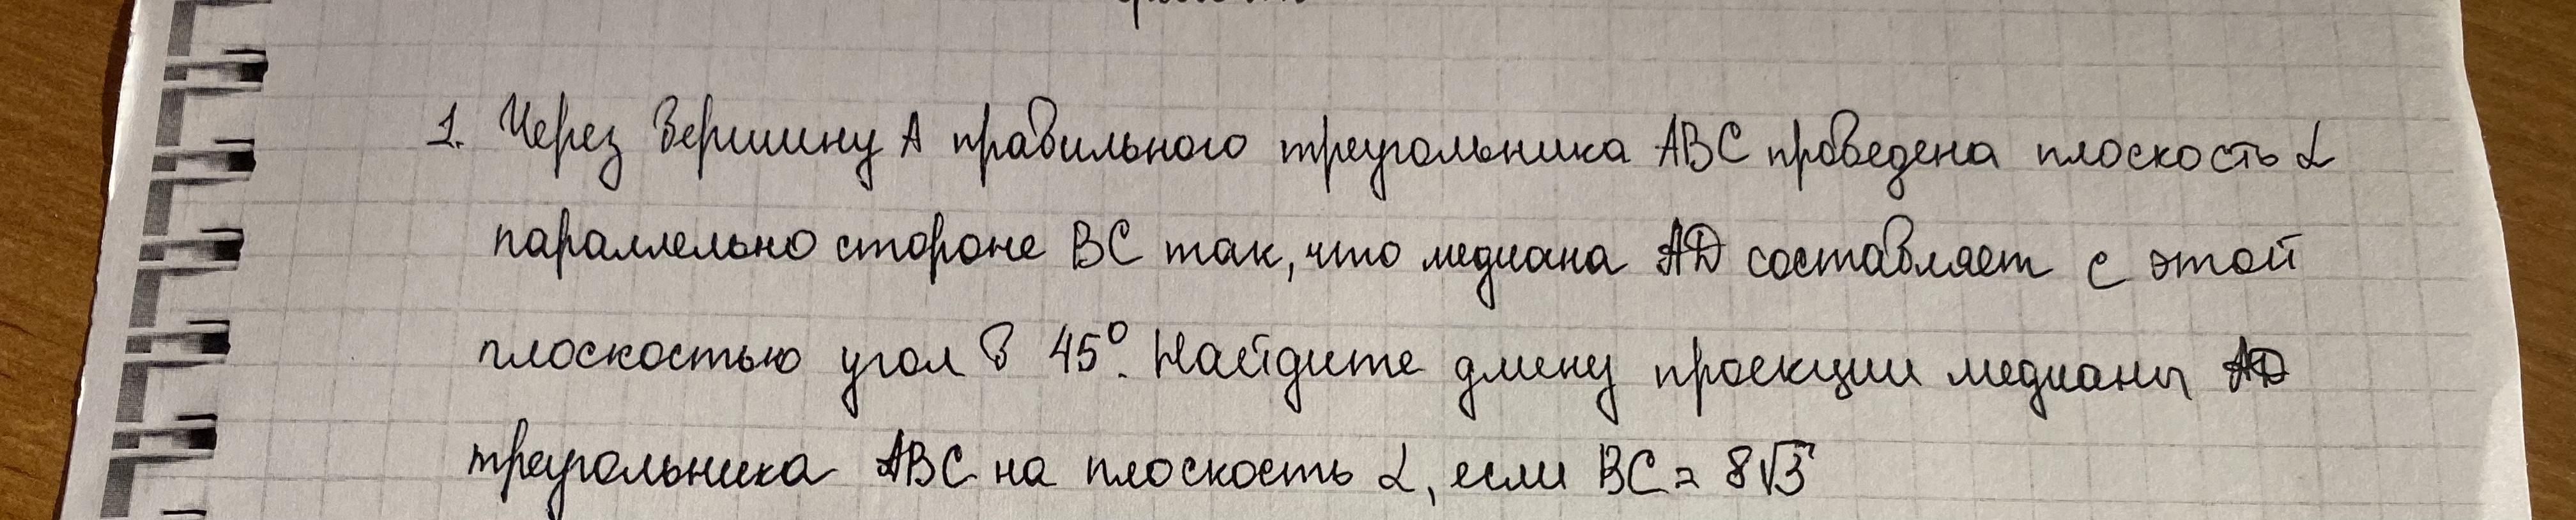 1. Через вершину А правильного треугольника ABC проведена плоскость α
параллельно стороне BC так, что медиана AD составляет с этой
плоскостью угол в 45°. Найдите длину проекции медианы AD
треугольника ABC на плоскость α, если BC = 8√3